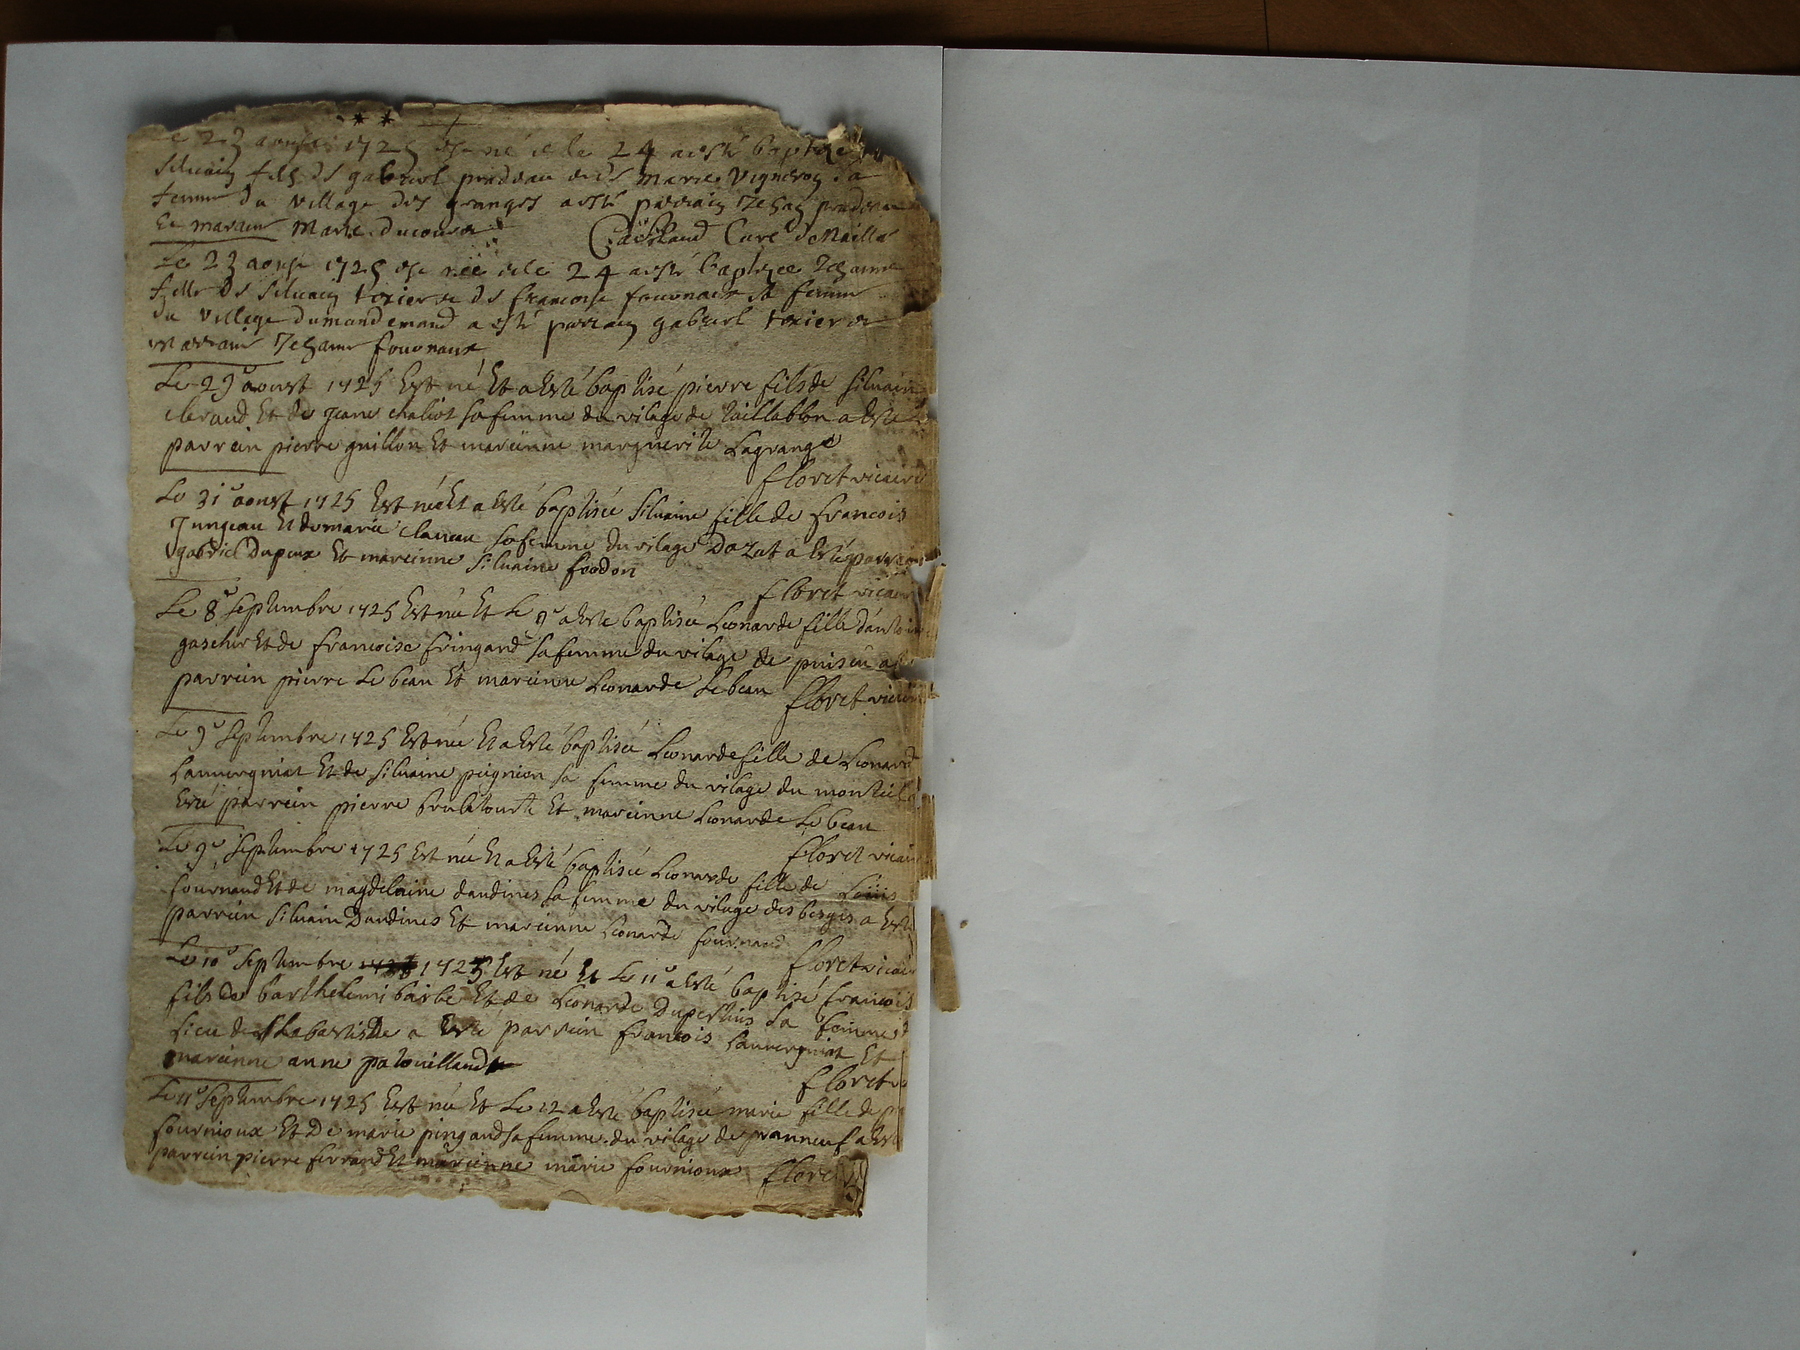 le 23 aoust 1725 est né et le 24 a esté baptize
silvain fils de gabriel pradeau et de marie vigneron sa
femme du village des granges a esté parrain Jehan pradeau
et maraine marie
Curé
Le 23 aoust 1725 est née et le 24 a esté baptizee Jehanne
fille de silvain texier et de francoise fournaux sa femme
du village a esté parrain gabriel texier et
marraine Jehanne fournaux
Le 29e aoust 1725 Est né Et a Esté baptisé pierre fils de silvain
et de jeane sa femme du vilage de a Esté
parrein pierre guillon Et mareinne marguerite Lagrange
floret vicaire
Le 31e aoust 1725 Est née Et a Esté baptisée silvaine fille de francois
Jungeau Et de marie sa femme du vilage Dazat a Esté parrein
gabriel Dupeux Et mareinne silvaine
floret vicaire
Le 8e septembre 1725 Est née Et Le 9e a Esté baptisée Leonarde fille
Et de francoise fringand sa femme du vilage de
parrein pierre Le beau Et mareinne Leonarde Lebeau floret vicaire
Le 9e septembre 1725 Est née Et a Esté baptisée Leonarde fille de Leonard
Lauvergniat Et de silvaine peignion sa femme du vilage du
Esté parrein pierre Et mareinne Leonarde Le beau
floret vicaire
Le 9e septembre 1725 Est née Et a Esté baptisée Leonarde fille de Loüis
fournaud Et de magdelaine daudines sa femme du vilage des a Esté
parrein silvain Daudines Et mareinne Leonarde fournaud
floret vicaire
Le 10e septembre 1725 Est né Et Le 11e a Esté baptisé francois
fils de barthelemi barbe Et de Leonarde sa femme
Lieu de a Esté parrein francois Lauvergniat Et
mareinne anne patouillaud
floret
Le 11e septembre 1725 Est née Et Le 12 a Esté baptisée marie fille de
fournioux Et De marie pingaud sa femme du vilage de a Esté
parrein pierre ferrand Et mareinne marie fournioux floret